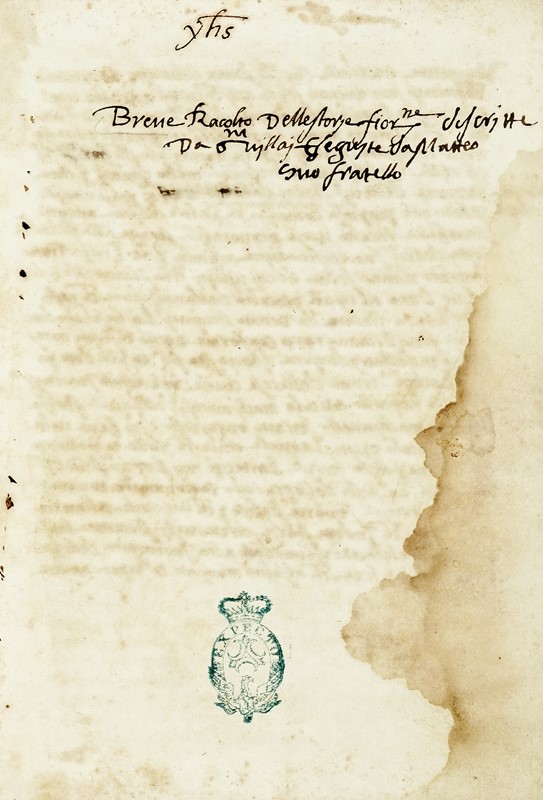 yhs
Breue Racolto Delle storje fior.ne descritte
Da G.ni villaj E seguite Da Matteo
suo fratello
EXPECTO